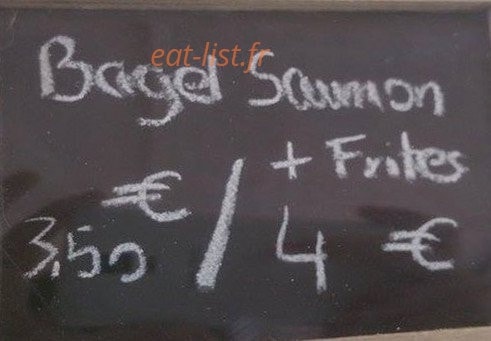 eat-list.fr
Bagel Saumon
+ Frites
3,50 € / 4 €